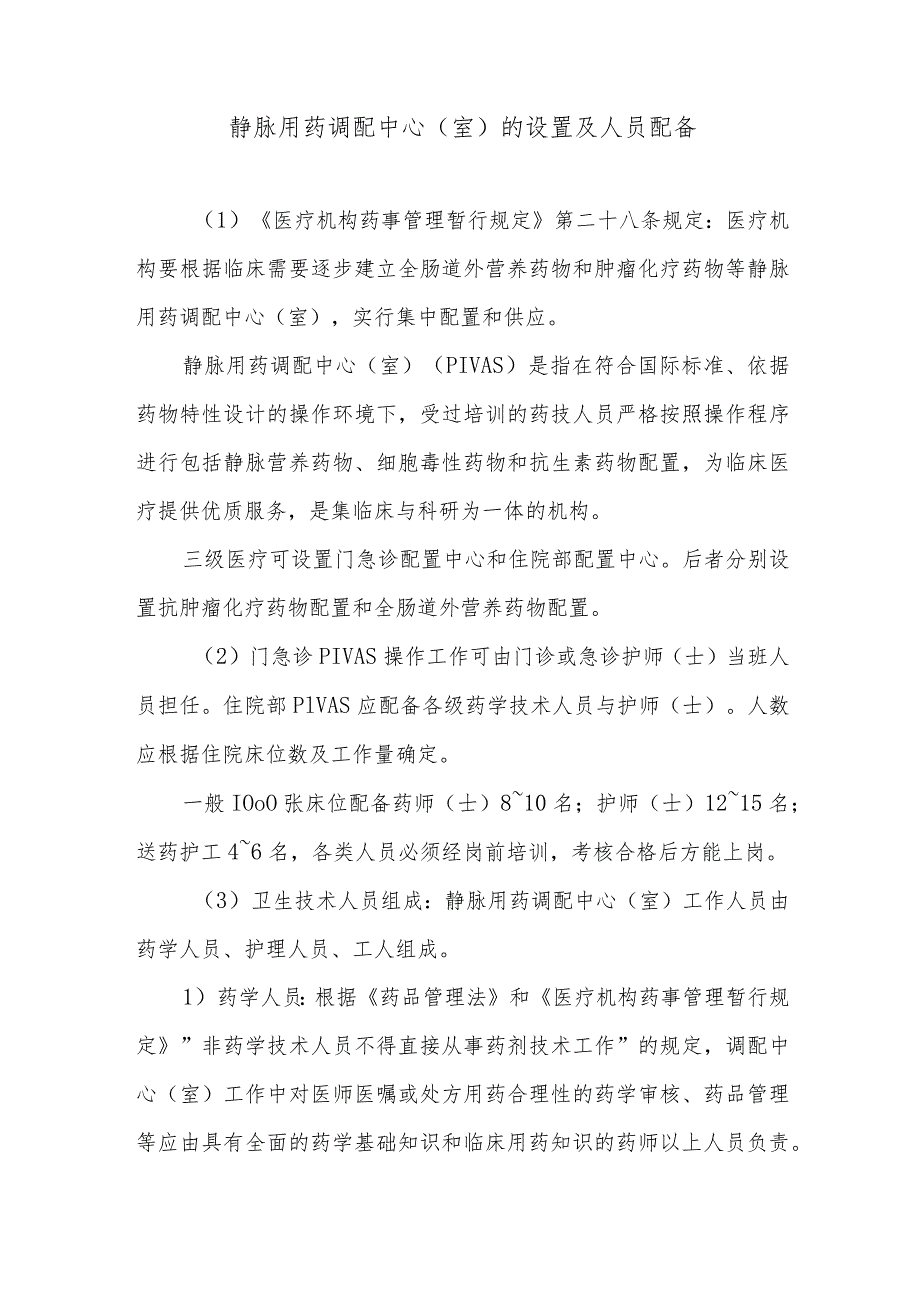 静脉用药调配中心（室）的设置及人员配备
（1）《医疗机构药事管理暂行规定》第二十八条规定：医疗机
构要根据临床需要逐步建立全肠道外营养药物和肿瘤化疗药物等静脉
用药调配中心（室），实行集中配置和供应。
静脉用药调配中心（室）（PIVAS）是指在符合国际标准、依据
药物特性设计的操作环境下，受过培训的药技人员严格按照操作程序
进行包括静脉营养药物、细胞毒性药物和抗生素药物配置，为临床医
疗提供优质服务，是集临床与科研为一体的机构。
三级医疗可设置门急诊配置中心和住院部配置中心。后者分别设
置抗肿瘤化疗药物配置和全肠道外营养药物配置。
（2）门急诊 PIVAS 操作工作可由门诊或急诊护师（士）当班人
员担任。住院部 PlVAS 应配备各级药学技术人员与护师（士）。人数
应根据住院床位数及工作量确定。
一般 IOoO 张床位配备药师（士）8~10 名；护师（士）12~15 名；
送药护工 4~6 名，各类人员必须经岗前培训，考核合格后方能上岗。
（3）卫生技术人员组成：静脉用药调配中心（室）工作人员由
药学人员、护理人员、工人组成。
1）药学人员：根据《药品管理法》和《医疗机构药事管理暂行规
定》”非药学技术人员不得直接从事药剂技术工作”的规定，调配中
心（室）工作中对医师医嘱或处方用药合理性的药学审核、药品管理
等应由具有全面的药学基础知识和临床用药知识的药师以上人员负责。